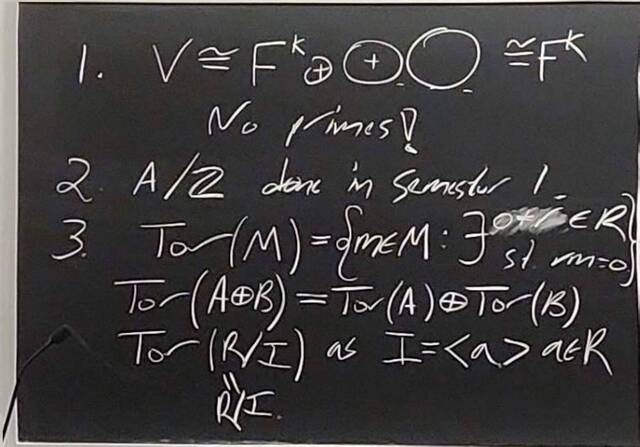 1. V ≅ F^k ⊕ ⊕ ◯ ≅ F^k
No primes!
2. A/ℤ done in Semester 1.
3. Tor(M) = {m∈M : ∃ 0≠r∈R st rm=0}
Tor(A⊕B) = Tor(A)⊕Tor(B)
Tor(R/I) as I=<a> a∈R
"
R/I.